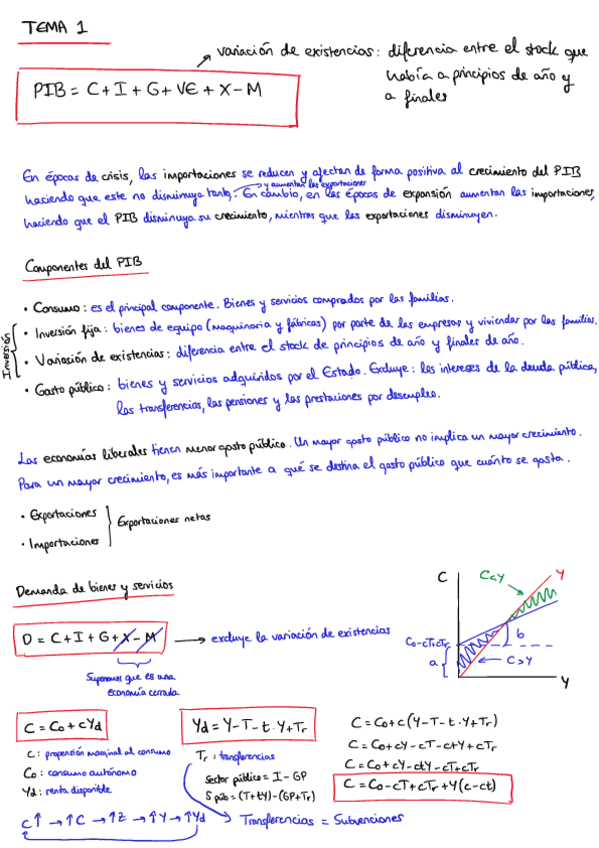 TEMA 1
variación de existencias: diferencia entre el stock que
había a principios de año y
a finales
PIB = C + I + G + VE + X - M
En épocas de crisis, las importaciones se reducen y afectan de forma positiva al crecimiento del PIB
y aumentan las exportaciones
haciendo que este no disminuya tanto. En cambio, en las épocas de expansión aumentan las importaciones,
haciendo que el PIB disminuya su crecimiento, mientras que las exportaciones disminuyen.
Componentes del PIB
• Consumo: es el principal componente. Bienes y servicios comprados por las familias.
Inversión
• Inversión fija: bienes de equipo (maquinaria y fábricas) por parte de las empresas y viviendas por las familias.
• Variación de existencias: diferencia entre el stock de principios de año y finales de año.
• Gasto público: bienes y servicios adquiridos por el Estado. Excluye: los intereses de la deuda pública,
las transferencias, las pensiones y las prestaciones por desempleo.
Las economías liberales tienen menor gasto público. Un mayor gasto público no implica un mayor crecimiento.
Para un mayor crecimiento, es más importante a qué se destina el gasto público que cuánto se gasta.
• Exportaciones
Exportaciones netas
• Importaciones
Demanda de bienes y servicios
D = C + I + G + X - M
excluye la variación de existencias
Suponemos que es una
economía cerrada
C
C<Y
Y
Co-cT+cTr
a
b
C>Y
Y
C = Co + cYd
c: propensión marginal al consumo
Co: consumo autónomo
Yd: renta disponible
c↑ → ↑C → ↑Z → ↑Y → ↑Yd
Yd = Y - T - t·Y + Tr
Tr: transferencias
Sector público = I - GP
S púb = (T + tY) - (GP + Tr)
Transferencias = Subvenciones
C = Co + c(Y - T - t·Y + Tr)
C = Co + cY - cT - ctY + cTr
C = Co + cY - ctY - cT + cTr
C = Co - cT + cTr + Y(c - ct)